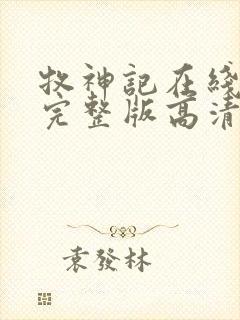 牧神記在綫
完整版高清
袁發林